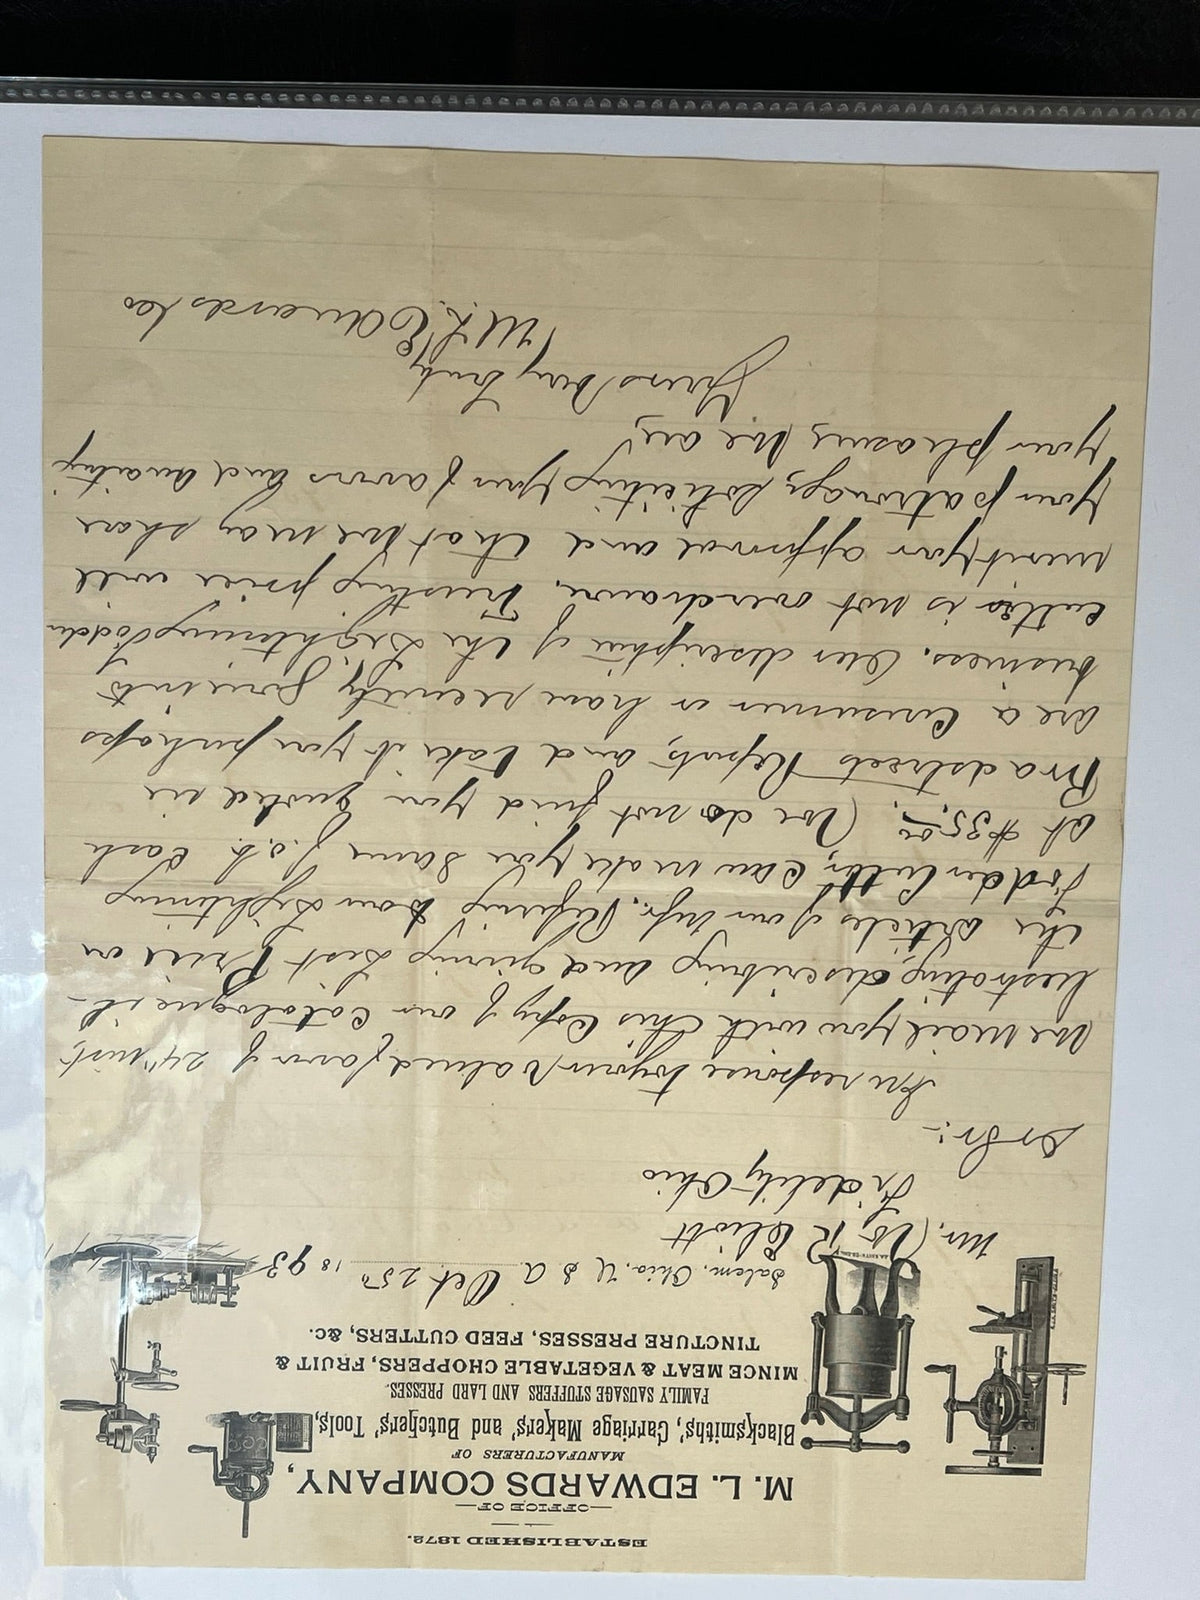 ESTABLISHED 1872.
OFFICE OF
M. L. EDWARDS COMPANY,
MANUFACTURERS OF
Blacksmiths', Carriage Makers' and Butchers' Tools,
FAMILY SAUSAGE STUFFERS AND LARD PRESSES.
MINCE MEAT & VEGETABLE CHOPPERS, FRUIT &
TINCTURE PRESSES, FEED CUTTERS, &C.
Salem, Ohio. U S A Oct 25th 1893
Mr. R Eliott
Fidelity Ohio
Dr Sir:-
In response to your valued favor of 24" inst,
We Mail you with this Copy of our Catalogue il-
lustrating, describing and giving List Price on
the articles of our Mfr. Refering to our Lightning
Fodder Cutter, Can make you same f.o.b. Cars
at $35.00. We do not find you quoted in
Bradstreets Reports, and take it you perhaps
are a Consumer or have recently gone into
business. Our description of the Lightening Fodder
Cutter is not overdrawn. Trusting price will
merit your approval and that we may share
your patronage, soliciting your favors and awaiting
your pleasure, We are,
Yours Very Truly
M L Edwards Co